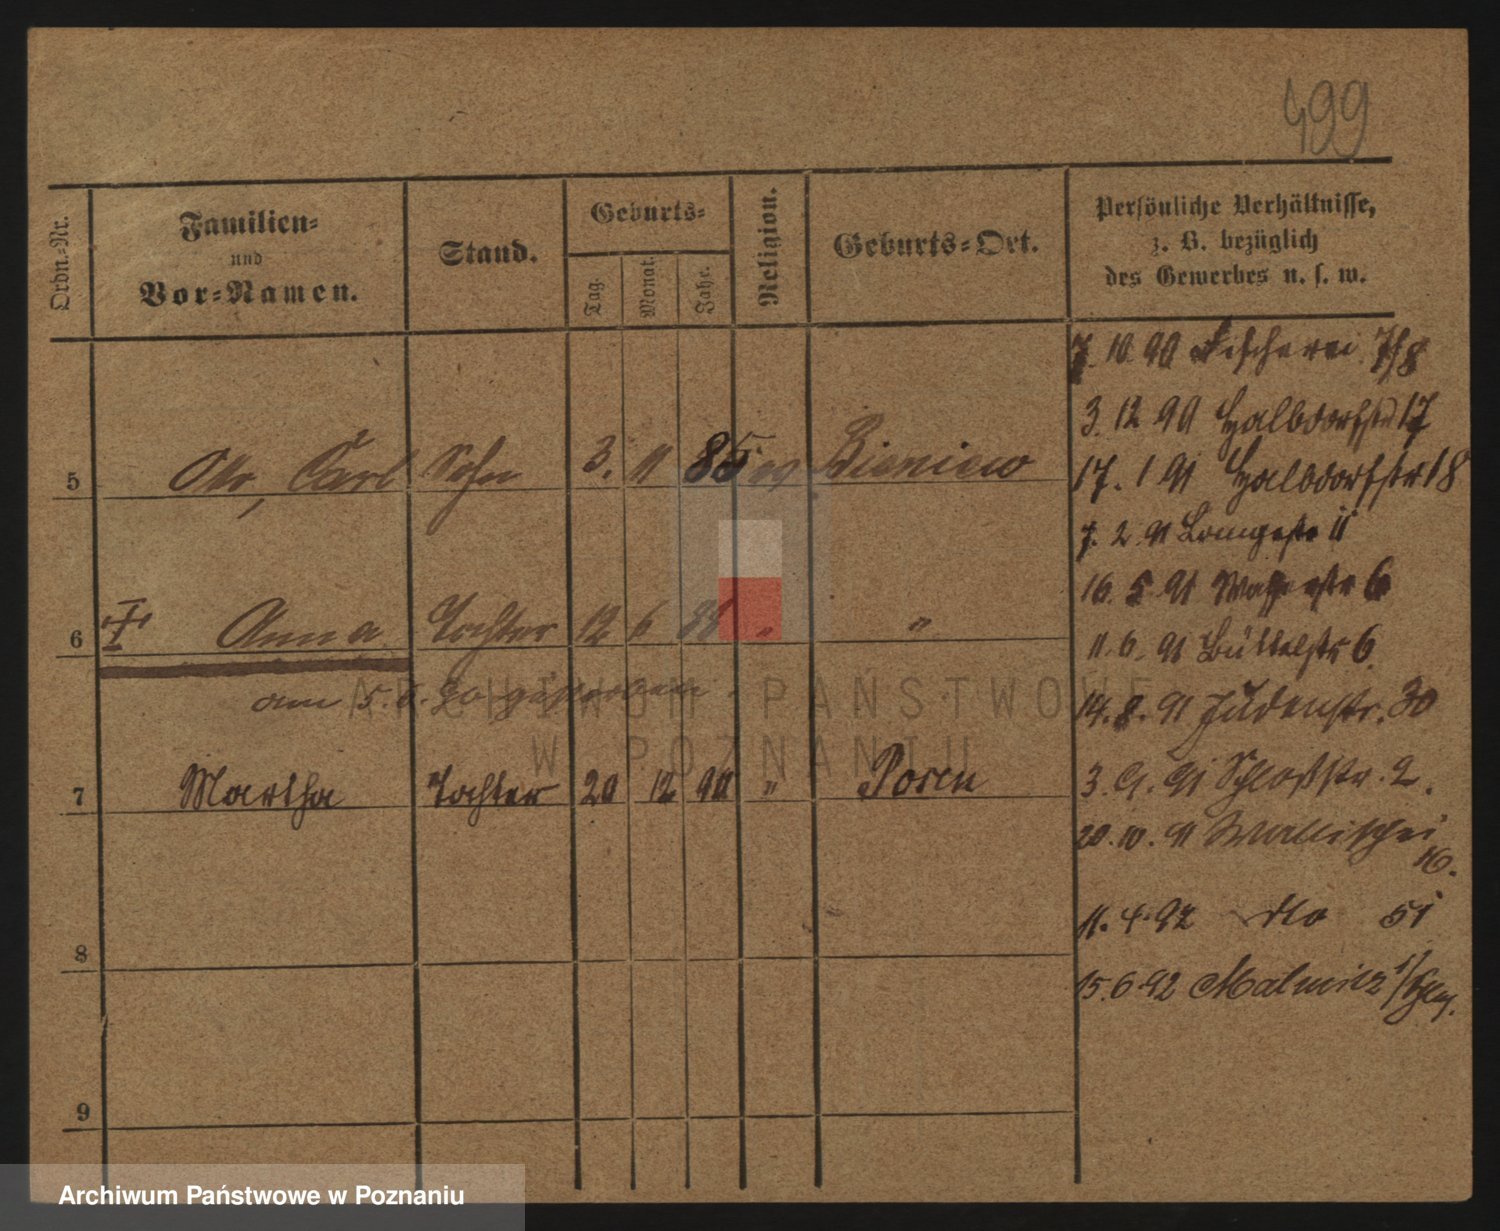 499
Ordn.-Nr.
Familien-
und
Vor-Namen.
Stand.
Geburts-
Tag.
Monat.
Jahr.
Religion.
Geburts-Ort.
Persönliche Verhältnisse,
z. B. bezüglich
des Gewerbes u. s. w.
7. 10. 90 Fischerei 7/8
3. 12 90 Halbdorfstr 17
5 Carl Sohn 3. 11 85 ev Bieniewo
17. 1 91 Halbdorfstr 18
7. 2. 91 Langestr 11
16. 5. 91 6
6 Anna Tochter 12 6 88 " "
11. 6. 91 Büttelstr 6.
am 5. 6. 90 gestorben.
14. 8. 91 Judenstr. 30
7 Martha Tochter 20 12 90 " Posen
3. 9. 91 Schloßstr. 2.
20. 10. 91 Wallischei
16.
11. 4. 92 dto 51
8
15. 6. 92
9
ARCHIWUM PAŃSTWOWE
W POZNANIU
Archiwum Państwowe w Poznaniu